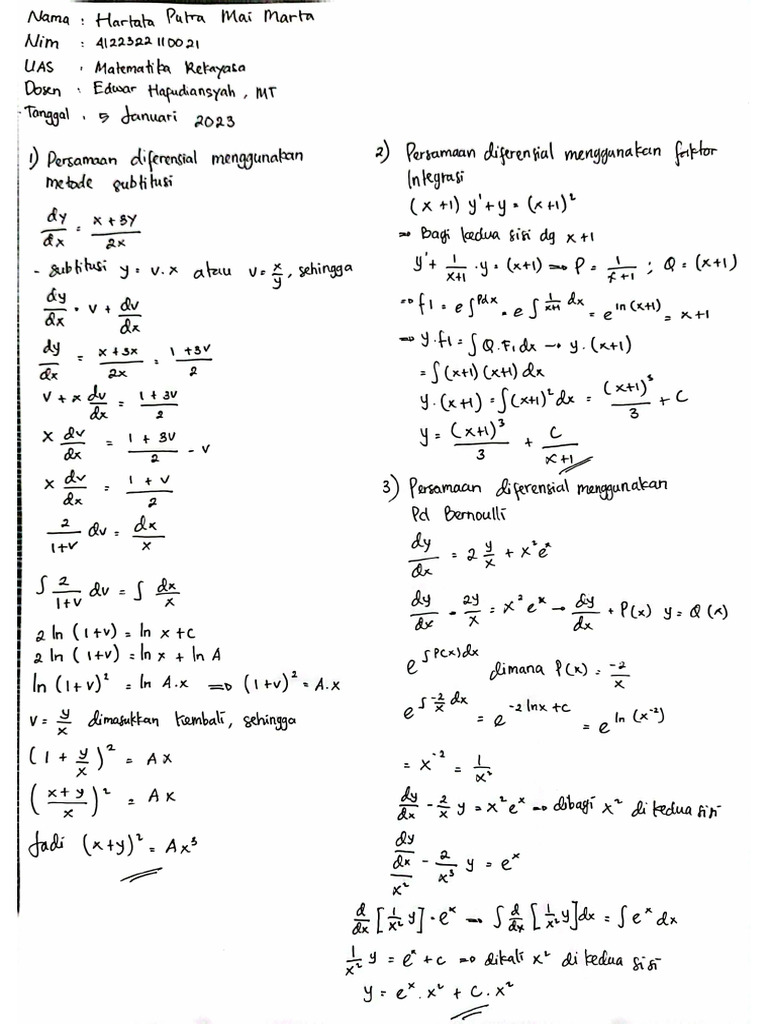 Nama : Hartata Putra Mai Marta
Nim : 4122322110021
UAS : Matematika Rekayasa
Dosen : Edwar Hafudiansyah, MT
Tanggal : 5 Januari 2023
1) Persamaan diferensial menggunakan
metode subtitusi
dy/dx = x + 3y / 2x
- Subtitusi y = v.x atau v = x/y, sehingga
dy/dx = v + dv/dx
dy/dx = x + 3x / 2x = 1 + 3v / 2
v + x dv/dx = 1 + 3v / 2
x dv/dx = 1 + 3v / 2 - v
x dv/dx = 1 + v / 2
2 / 1+v dv = dx / x
∫ 2 / 1+v dv = ∫ dx / x
2 ln (1+v) = ln x + c
2 ln (1+v) = ln x + ln A
ln (1+v)² = ln A.x ⇒ (1+v)² = A.x
v = y/x dimasukkan kembali, sehingga
(1 + y/x)² = Ax
(x+y / x)² = Ax
Jadi (x+y)² = Ax³
2) Persamaan diferensial menggunakan faktor
Integrasi
(x+1) y' + y = (x+1)²
⇒ Bagi kedua sisi dg x+1
y' + 1/x+1 . y = (x+1) ⇒ P = 1/x+1 ; Q = (x+1)
⇒ f1 = e ∫Pdx = e ∫ 1/x+1 dx = e ln (x+1) = x+1
⇒ y.f1 = ∫Q.F1 dx → y.(x+1)
= ∫(x+1)(x+1) dx
y.(x+1) = ∫(x+1)² dx = (x+1)³ / 3 + C
y = (x+1)³ / 3 + C / x+1
3) Persamaan diferensial menggunakan
Pd Bernoulli
dy/dx = 2 y/x + x²eˣ
dy/dx - 2y/x = x²eˣ → dy/dx + P(x) y = Q(x)
e ∫P(x)dx dimana P(x) = -2/x
e ∫-2/x dx = e -2 ln x + c = e ln (x⁻²)
= x⁻² = 1/x²
dy/dx - 2/x y = x²eˣ ⇒ dibagi x² di kedua sisi
dy/dx / x² - 2/x³ y = eˣ
d/dx [1/x² y] = eˣ → ∫ d/dx [1/x² y] dx = ∫eˣ dx
1/x² y = eˣ + c ⇒ dikali x² di kedua sisi
y = eˣ . x² + C . x²